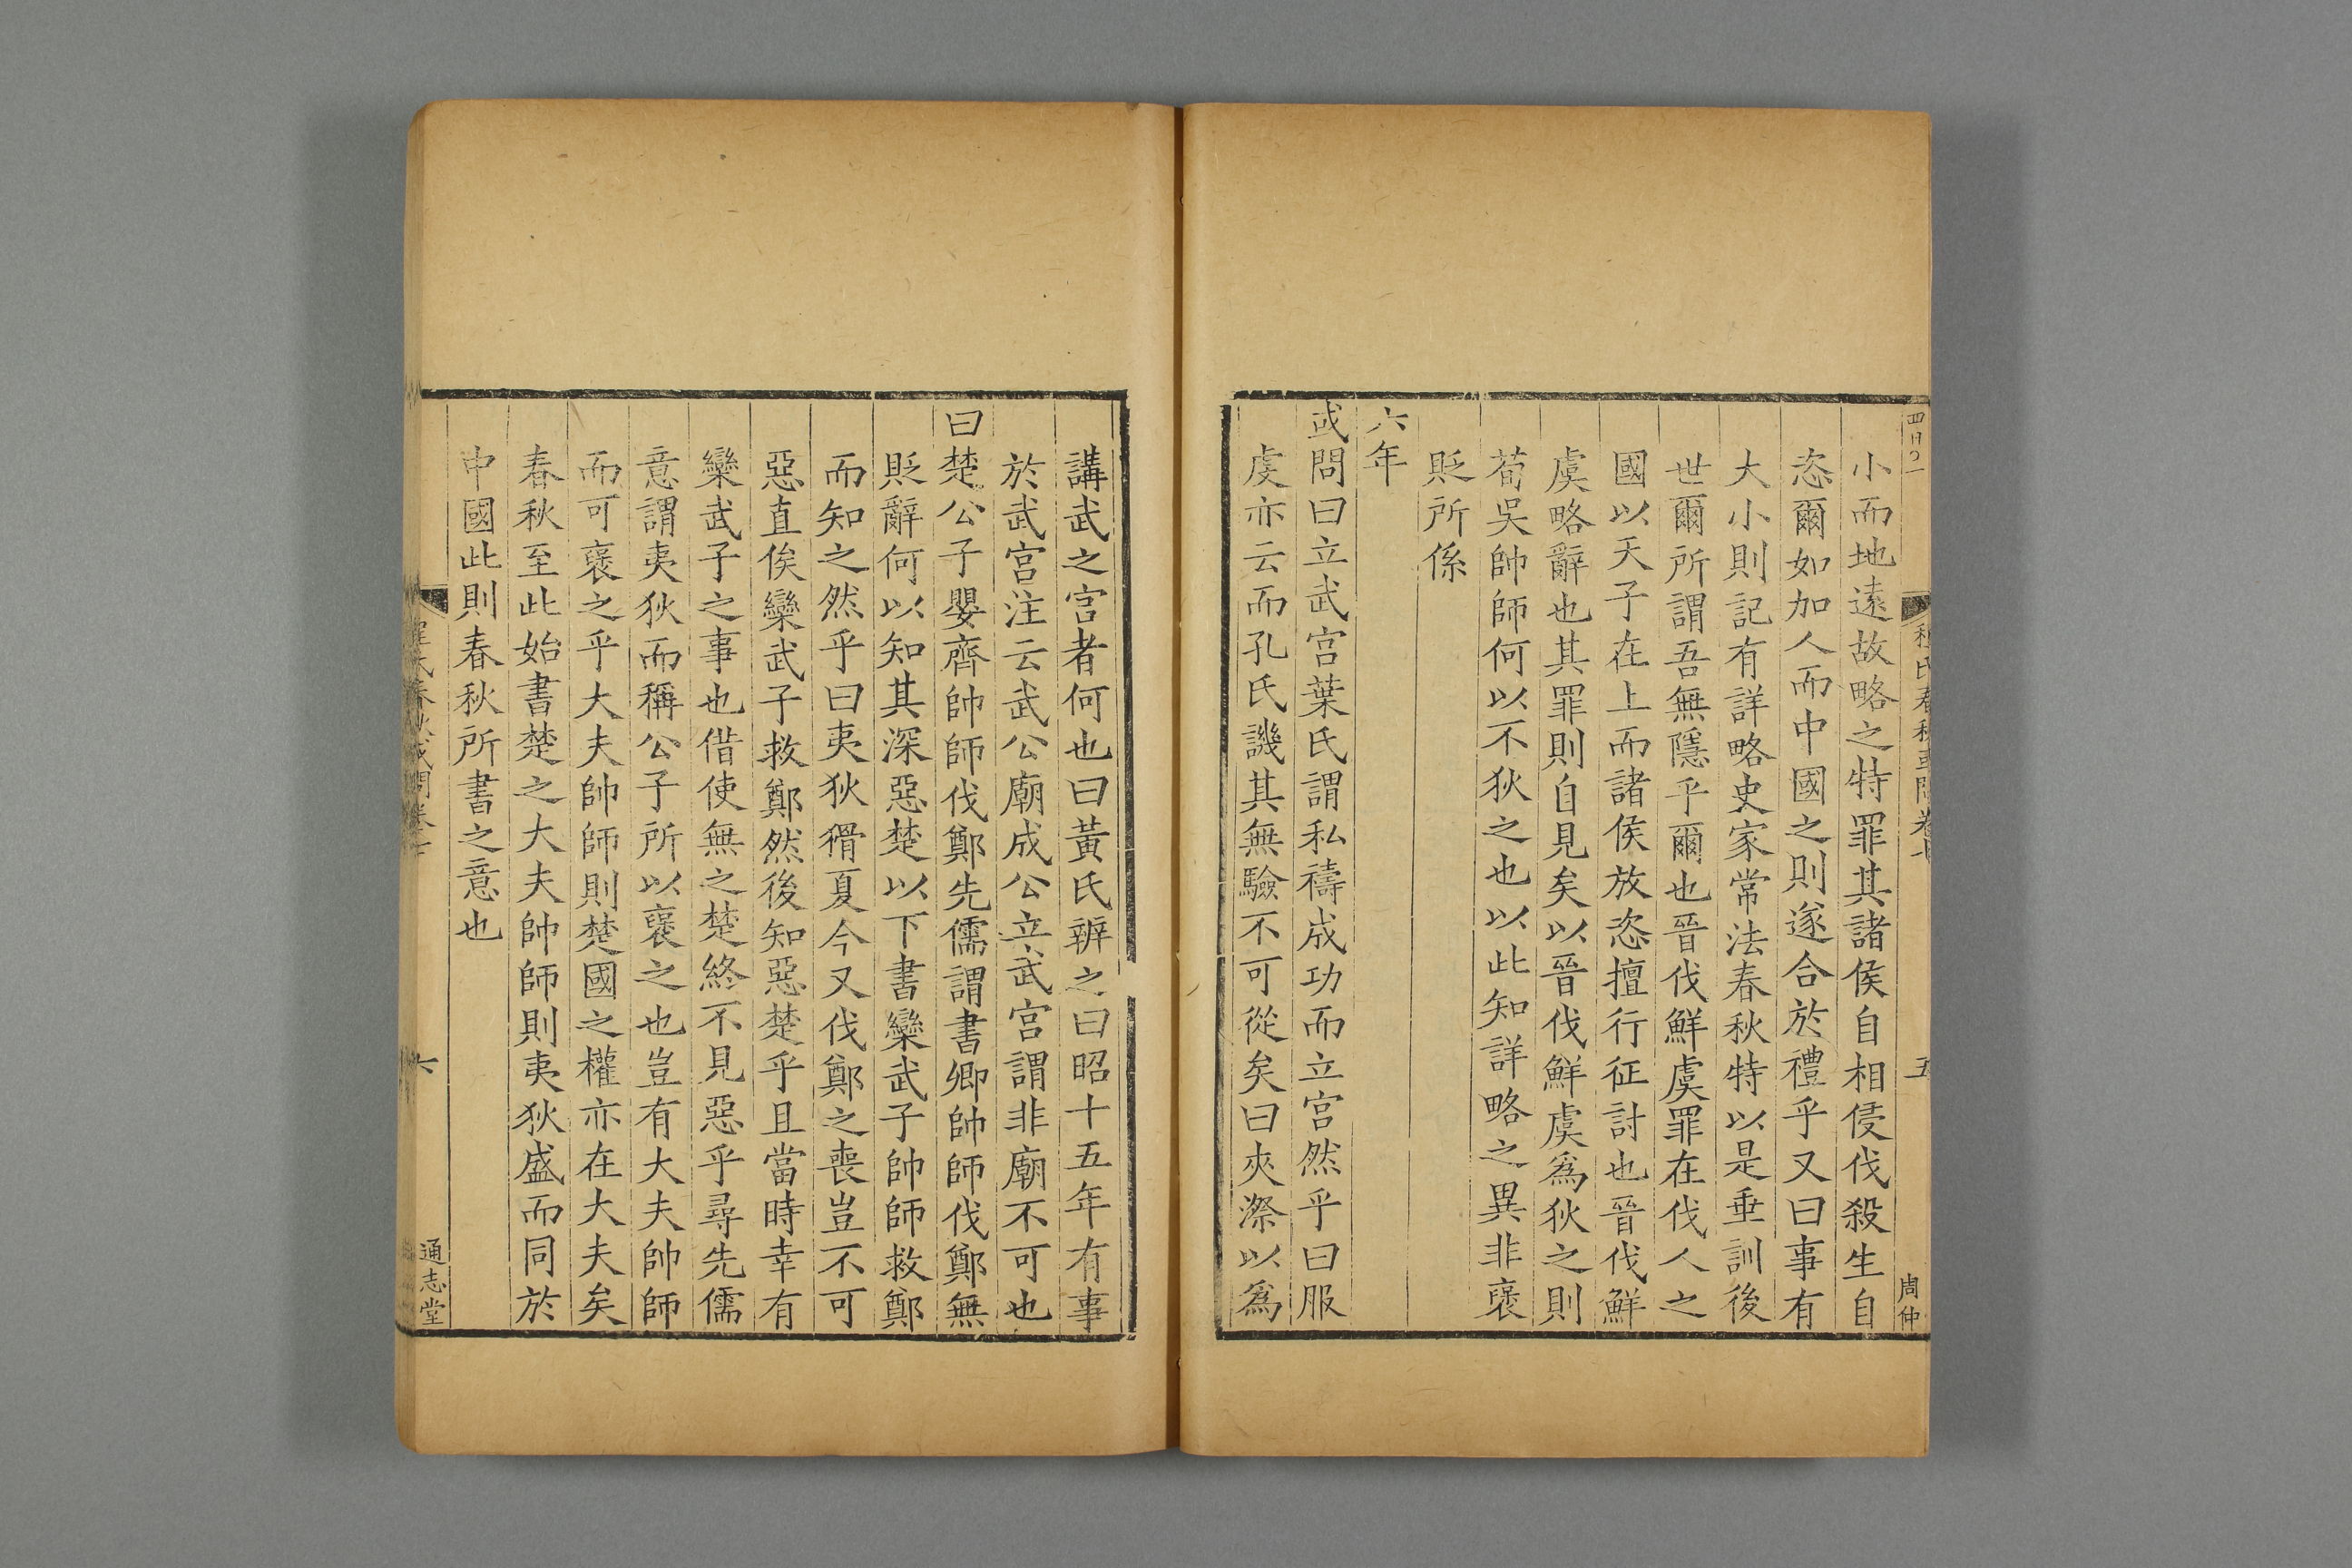 小而地遠故略之特罪其諸侯自相侵伐殺生自
恣爾如加人而中國之則遂合於禮乎又曰事有
大小則記有詳略史家常法春秋特以是垂訓後
世爾所謂吾無隱乎爾也晉伐鮮虞罪在伐人之
國以天子在上而諸侯放恣擅行征討也晉伐鮮
虞略辭也其罪則自見矣以晉伐鮮虞爲狄之則
荀吳帥師何以不狄之也以此知詳略之異非襃
貶所係
六年
或問曰立武宮葉氏謂私禱成功而立宮然乎曰服
虔亦云而孔氏譏其無驗不可從矣曰夾漈以爲
五
周仲
講武之宮者何也曰黃氏辨之曰昭十五年有事
於武宮注云武公廟成公立武宮謂非廟不可也
曰楚公子嬰齊帥師伐鄭先儒謂書卿帥師伐鄭無
貶辭何以知其深惡楚以下書欒武子帥師救鄭
而知之然乎曰夷狄猾夏今又伐鄭之喪豈不可
惡直俟欒武子救鄭然後知惡楚乎且當時幸有
欒武子之事也借使無之楚終不見惡乎尋先儒
意謂夷狄而稱公子所以襃之也豈有大夫帥師
而可襃之乎大夫帥師則楚國之權亦在大夫矣
春秋至此始書楚之大夫帥師則夷狄盛而同於
中國此則春秋所書之意也
六
通志堂